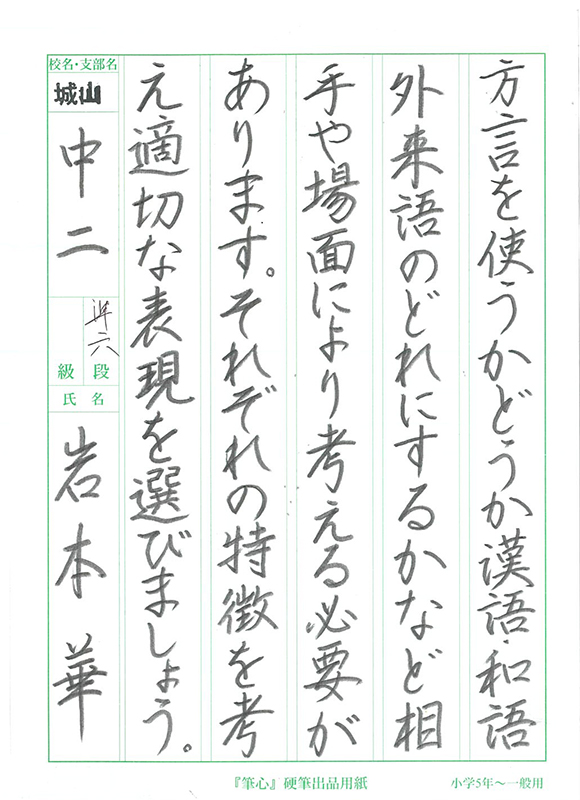 方言を使うかどうか漢語・和語
外来語のどれにするかなど相
手や場面により考える必要が
あります。それぞれの特徴を考
え適切な表現を選びましょう。
校名・支部名
城山
中二
準六
段
級
氏名
岩本華
『筆心』硬筆出品用紙
小学5年〜一般用